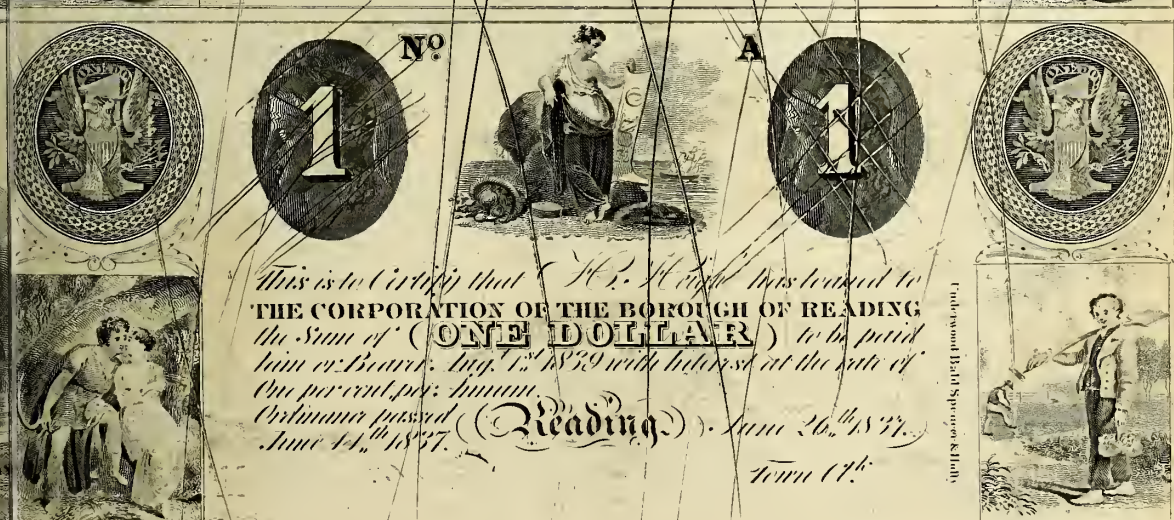 No A
1 1
ONE DO
This is to Certify that H. has loaned to
THE CORPORATION OF THE BOROUGH OF READING
the Sum of (ONE DOLLAR) to be paid
him or Bearer Aug. 1st 1839 with Interest at the rate of
One per cent, per: Annum.
Ordinance passed
June 14th 1837.
Reading June 26th 1837.
Town Clk
Underwood Bald Spencer & Hufty